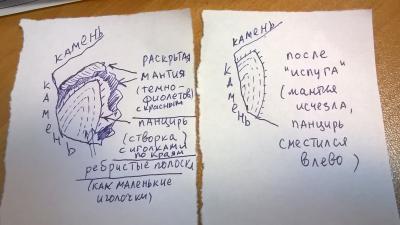 КАМЕНЬ
КАМЕНЬ
РАСКРЫТАЯ
МАНТИЯ
(ТЕМНО-
ФИОЛЕТОВ)
С КРАСНЫМ
ПАНЦИРЬ
(СТВОРКА)
С ИГОЛКАМИ
ПО КРАЯМ
РЕБРИСТЫЕ ПОЛОСКИ
(КАК МАЛЕНЬКИЕ
ИГОЛОЧКИ)
КАМЕНЬ
КАМЕНЬ
ПОСЛЕ
"ИСПУГА"
(МАНТИЯ
ИСЧЕЗЛА,
ПАНЦИРЬ
СМЕСТИЛСЯ
ВЛЕВО)